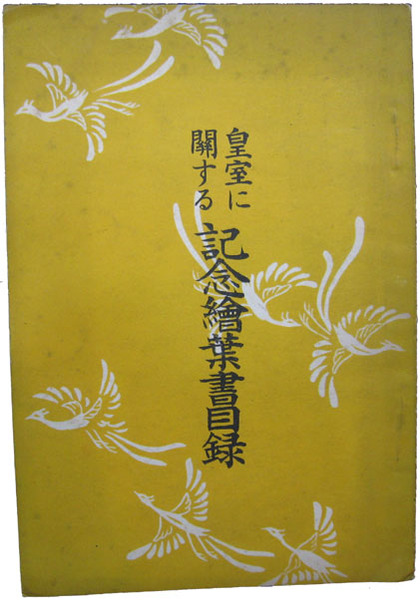 皇室に
關する
記念繪葉書目録